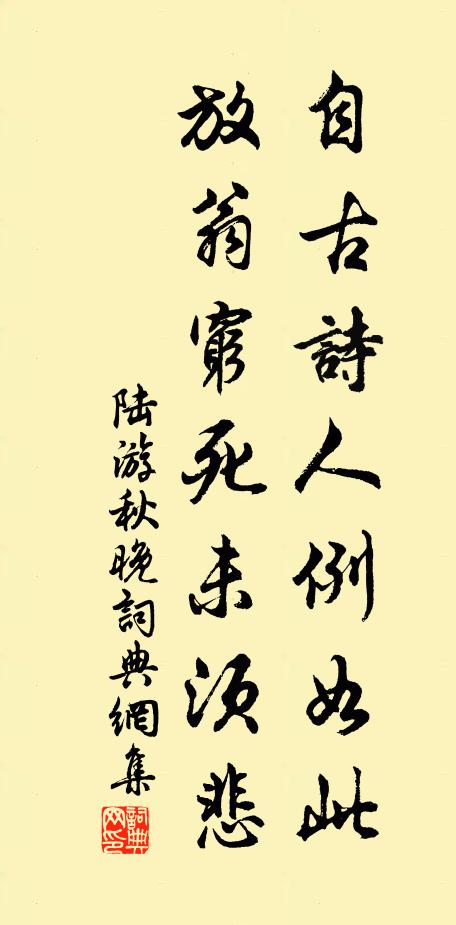 自古詩人例如此
放翁窮死未須悲
陆游秋晚詞典網集
詞典网印